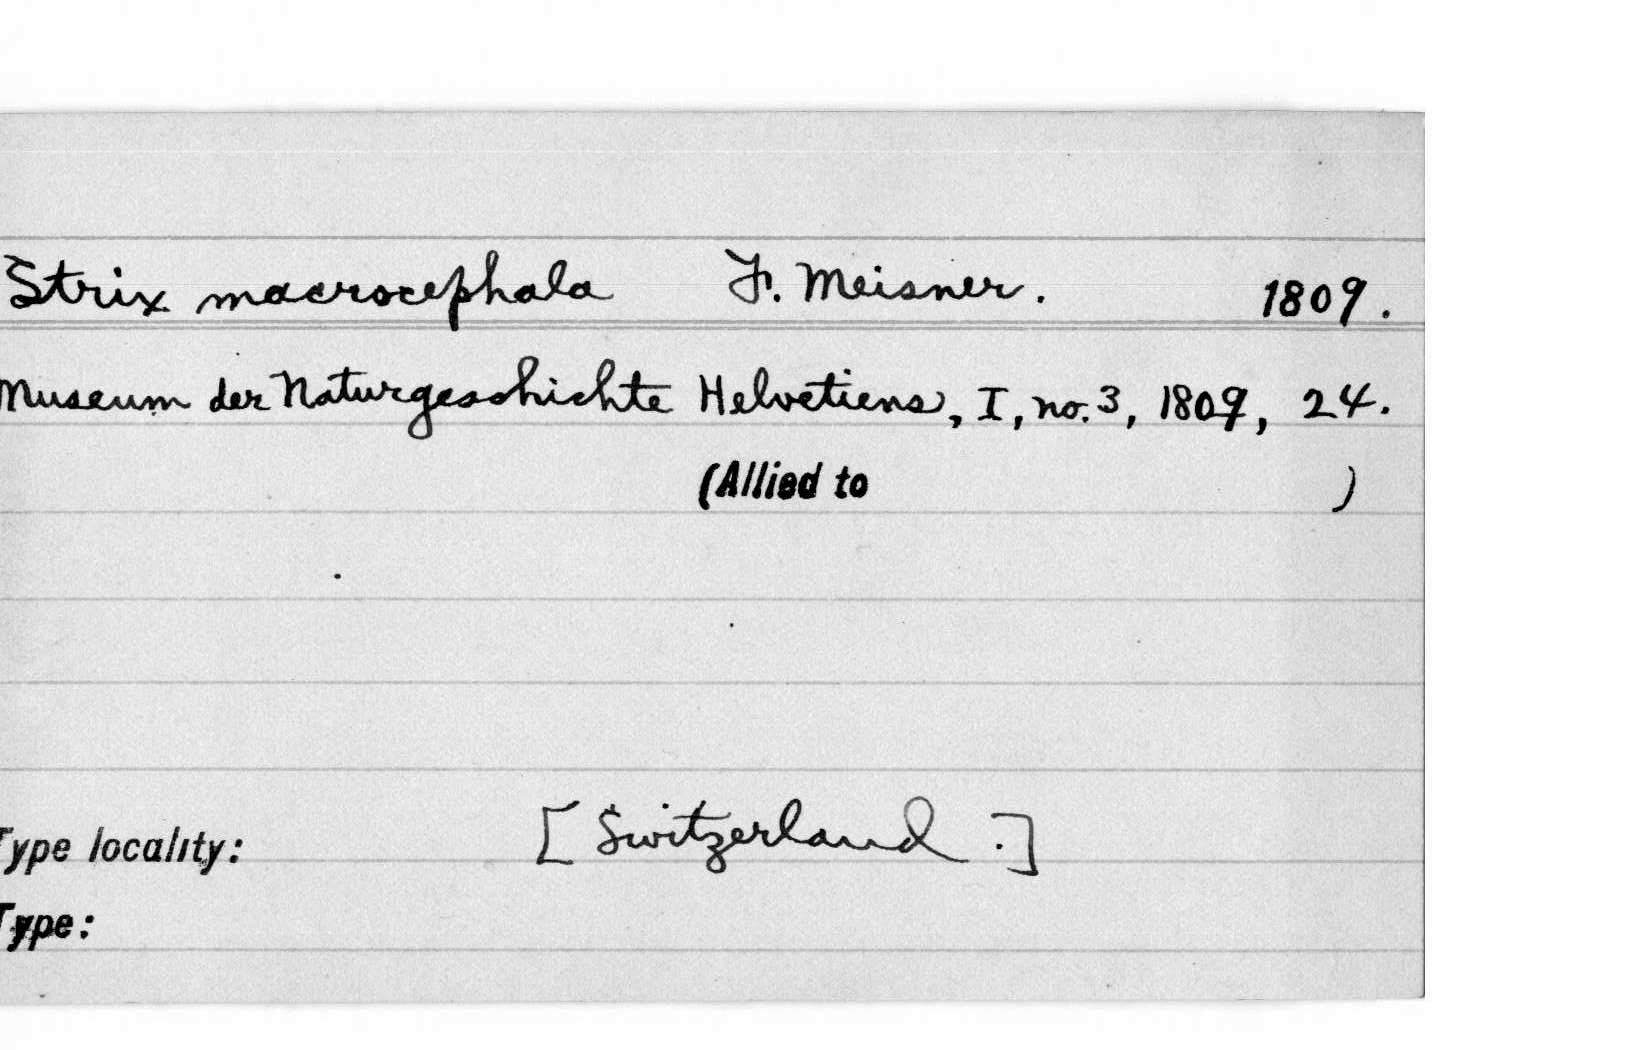 Strix macrocephala F. Meisner. 1809.
Museum der Naturgeschichte Helvetiens, I, no. 3, 1809, 24.
(Allied to )
Type locality: [Switzerland.]
Type: